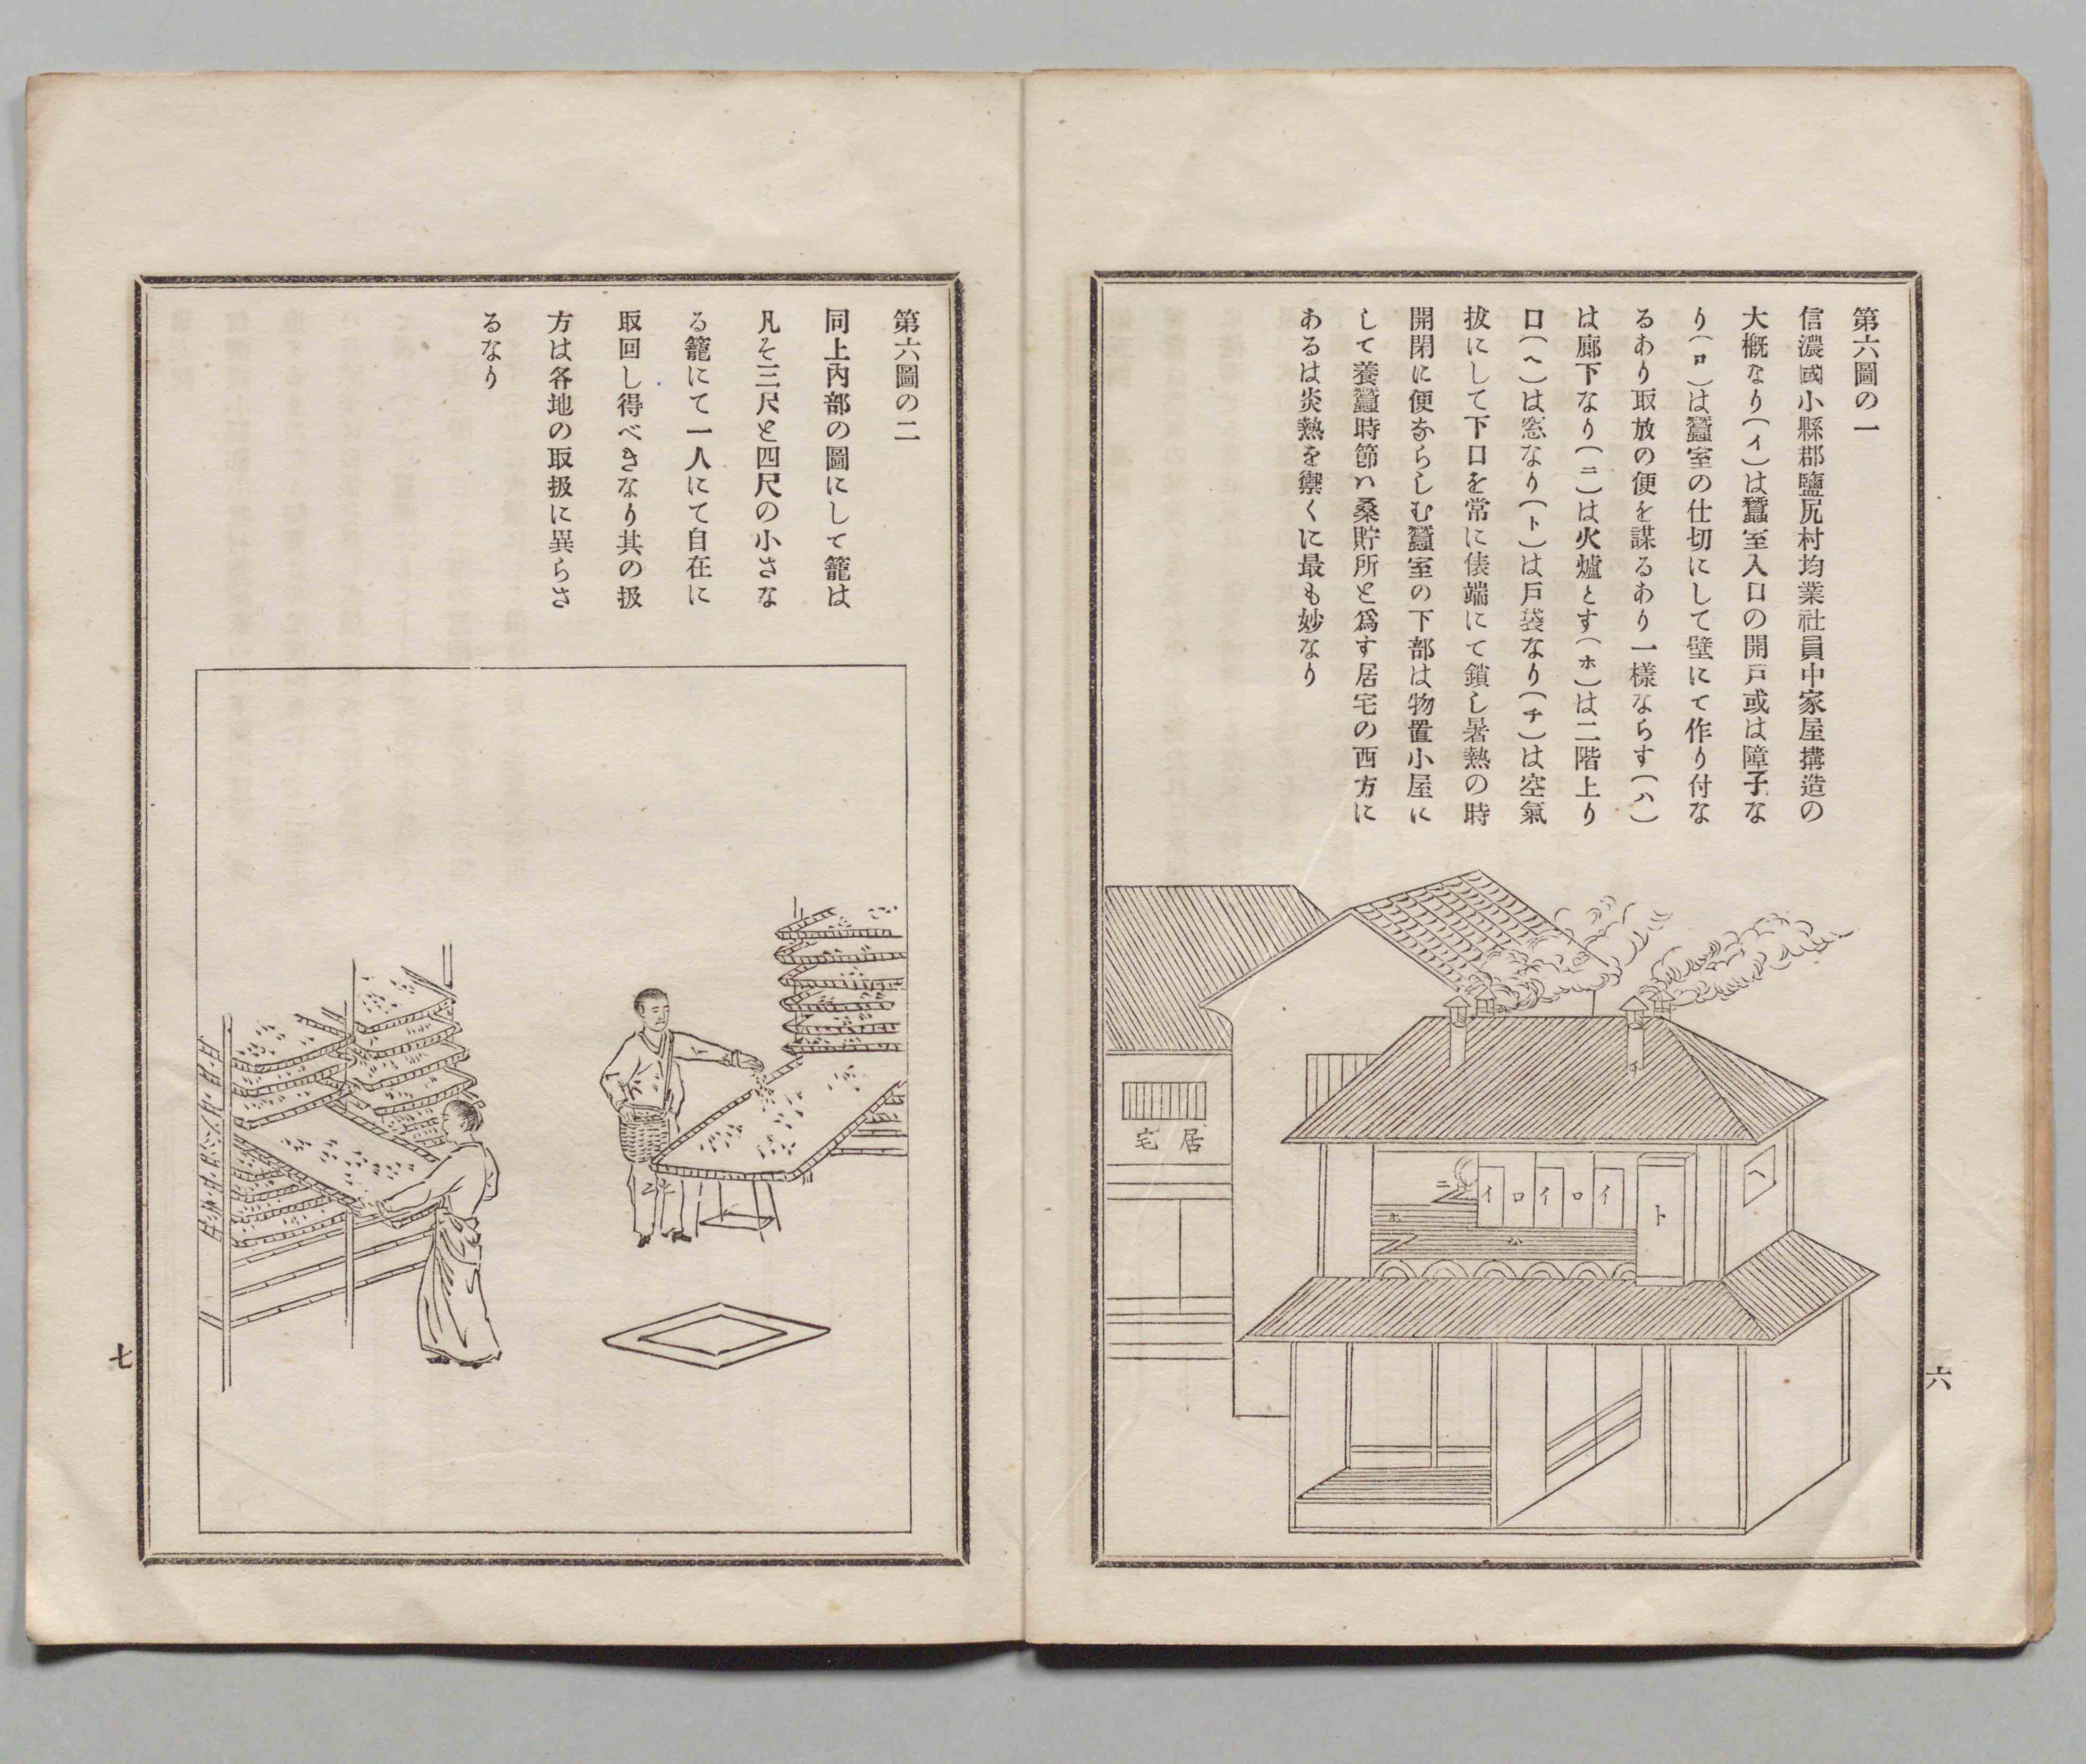 第六圖の一
信濃國小縣郡鹽尻村均業社員中家屋搆造の
大概なり（イ）は蠶室入口の開戸或は障子な
り（ロ）は蠶室の仕切にして壁にて作り付な
るあり取放の便を謀るあり一樣ならす（ハ）
は廊下なり（ニ）は火爐とす（ホ）は二階上り
口（ヘ）は窓なり（ト）は戸袋なり（チ）は空氣
拔にして下口を常に俵端にて鎖し暑熱の時
開閉に便ならしむ蠶室の下部は物置小屋に
して養蠶時節ハ桑貯所と爲す居宅の西方に
あるは炎熱を禦くに最も妙なり
チ
居宅
ヘ
ニ
イ
ロ
イ
ロ
イ
ト
ホ
ハ
六
第六圖の二
同上內部の圖にして籠は
凡そ三尺と四尺の小さな
る籠にて一人にて自在に
取回し得べきなり其の扱
方は各地の取扱に異らさ
るなり
七